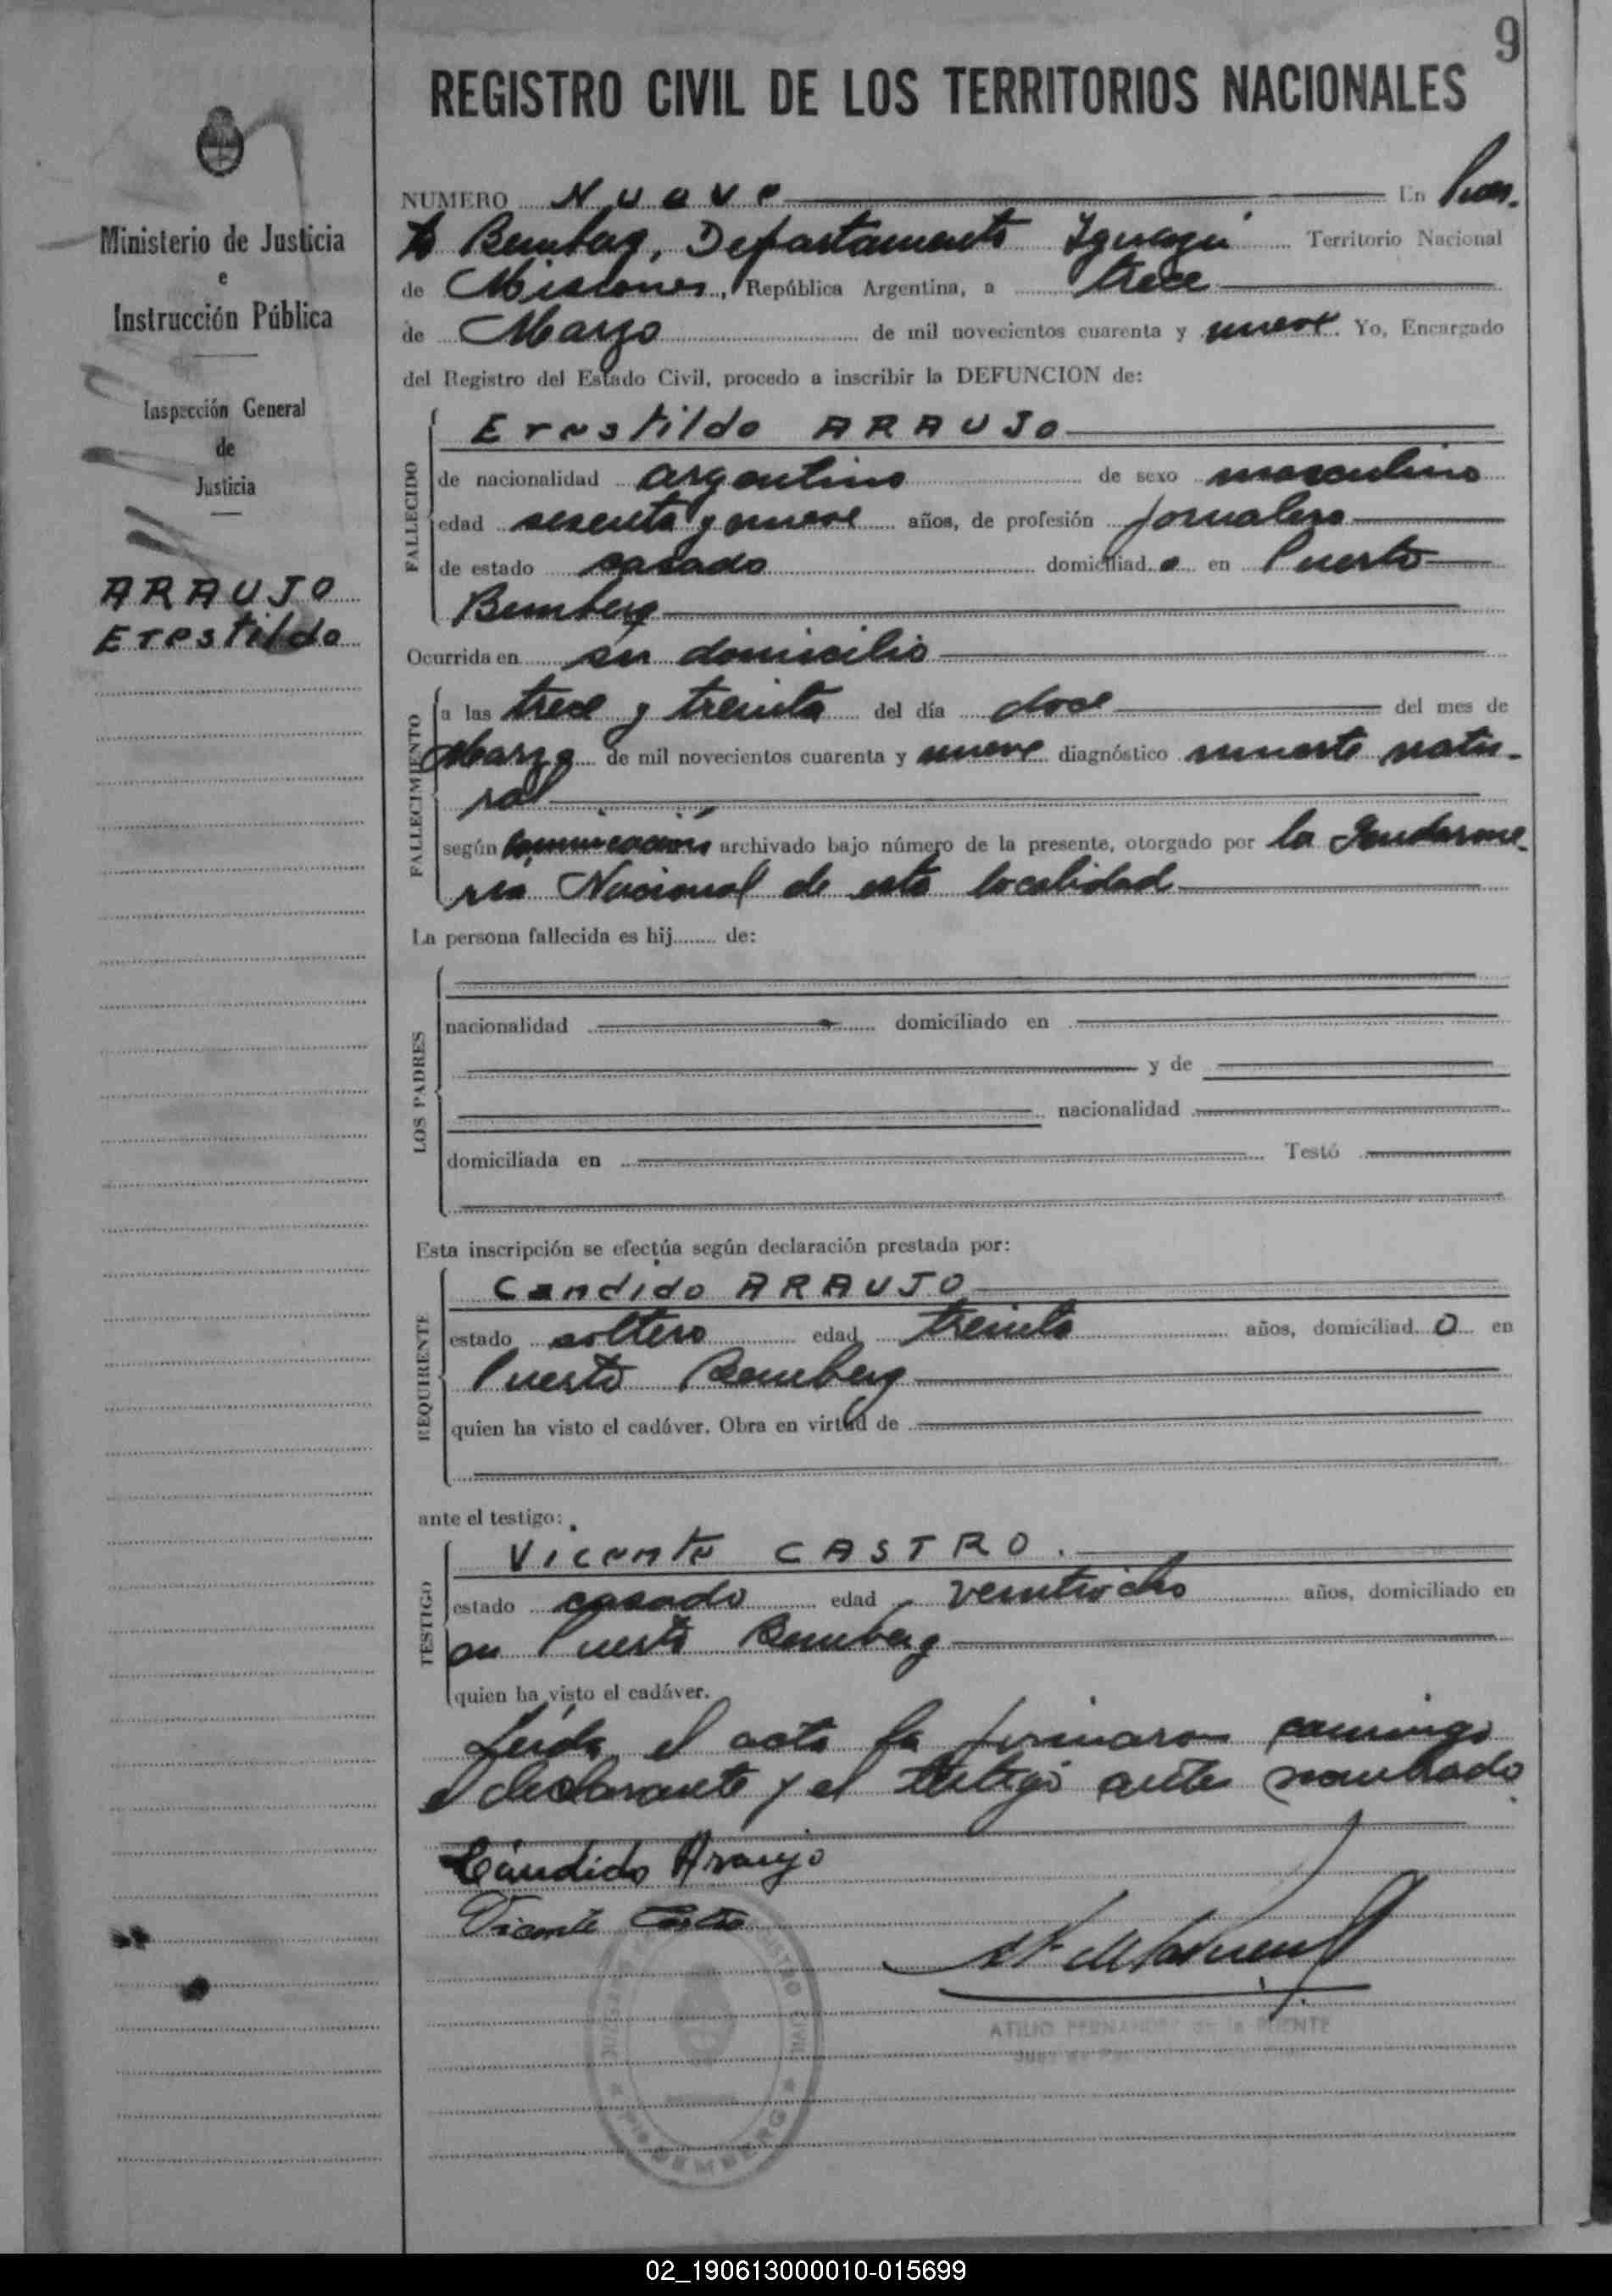 9
REGISTRO CIVIL DE LOS TERRITORIOS NACIONALES
Ministerio de Justicia
e
Instrucción Pública
Inspección General
de
Justicia
ARAUJO
Erestildo
NUMERO Nueve En Puer-
to Bemberg, Departamento Iguazú Territorio Nacional
de Misiones, República Argentina, a trece
de Marzo de mil novecientos cuarenta y nueve. Yo, Encargado
del Registro del Estado Civil, procedo a inscribir la DEFUNCION de:
FALLECIDO
Erestildo ARAUJO
de nacionalidad argentino de sexo masculino
edad sesenta y nueve años, de profesión jornalero
de estado casado domiciliad o en Puerto
Bemberg
Ocurrida en su domicilio
FALLECIMIENTO
a las trece y treinta del día doce del mes de
Marzo de mil novecientos cuarenta y nueve diagnóstico muerte natu-
ral
según comunicación archivado bajo número de la presente, otorgado por la Gendarme-
ria Nacional de esta localidad
La persona fallecida es hij........ de:
LOS PADRES
nacionalidad domiciliado en
y de
nacionalidad
domiciliada en Testó
Esta inscripción se efectúa según declaración prestada por:
REQUIRENTE
Candido ARAUJO
estado soltero edad treinta años, domiciliad o en
Puerto Bemberg
quien ha visto el cadáver. Obra en virtud de
ante el testigo:
TESTIGO
Vicente CASTRO.
estado casado edad veintiocho años, domiciliado en
en Puerto Bemberg
quien ha visto el cadáver.
Leida el acta la firmaron conmigo
el declarante y el testigo antes nombrado.
Cándido Araujo
Vicente Castro
ATILIO FERNANDEZ de la PUENTE
BEMBERG
02_190613000010-015699